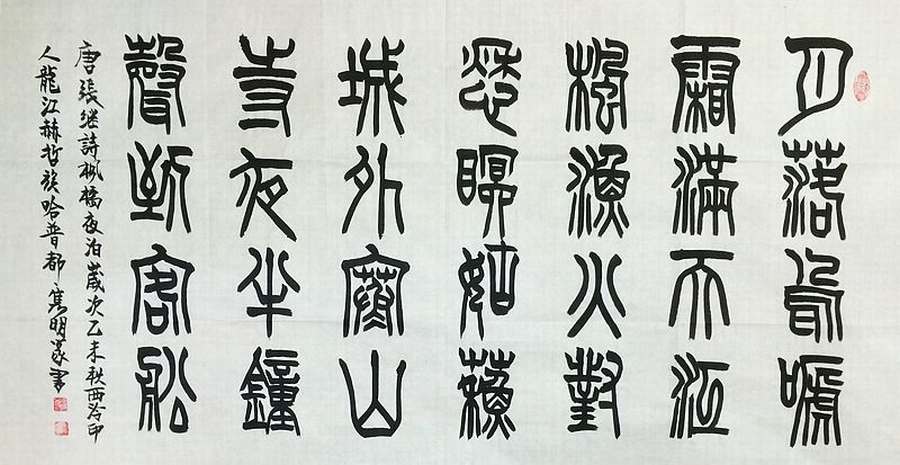 月落烏嗁
霜滿天江
楓漁火對
愁眠姑蘇
城外寒山
寺夜半鐘
聲到客船
唐張继詩楓橋夜泊歲次乙未秋西泠印
人龍江赫哲族哈普都隽明篆書